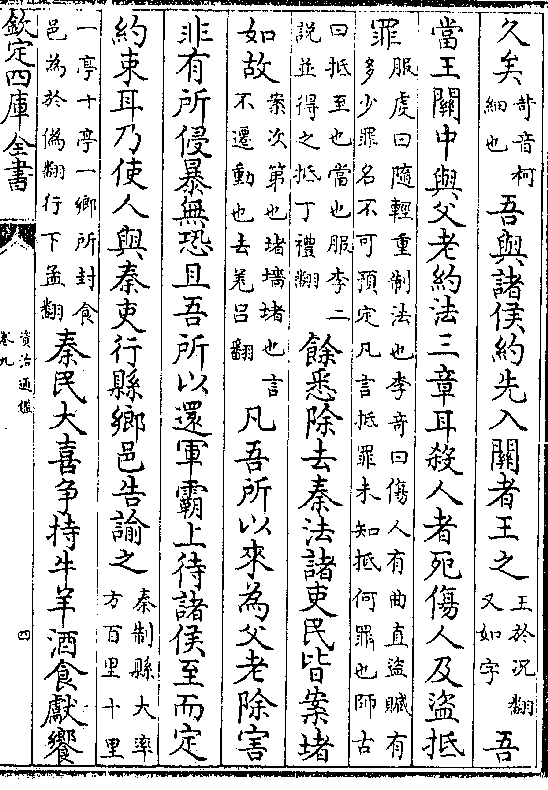 久矣苛音柯細也吾與諸侯約先入關者王之王於況翻又如字吾
當王關中與父老約法三章耳殺人者死傷人及盜抵
罪服䖍曰隨輕重制法也李竒曰傷人有曲直盜贓有多少罪名不可預定凡言抵罪未知抵何罪也師古
曰抵至也當也服李二説並得之抵丁禮翻餘悉除去秦法諸吏民皆案堵
如故案次第也堵墻堵也言不遷動也去羌呂翻凡吾所以來為父老除害
非有所侵暴無恐且吾所以還軍霸上待諸侯至而定
約束耳乃使人與秦吏行縣鄉邑告諭之秦制縣大率方百里十里
一亭十亭一鄉所封食邑為於偽翻行下孟翻秦民大喜爭持牛羊酒食獻饗
欽定四庫全書
資治通鑑
卷九
四